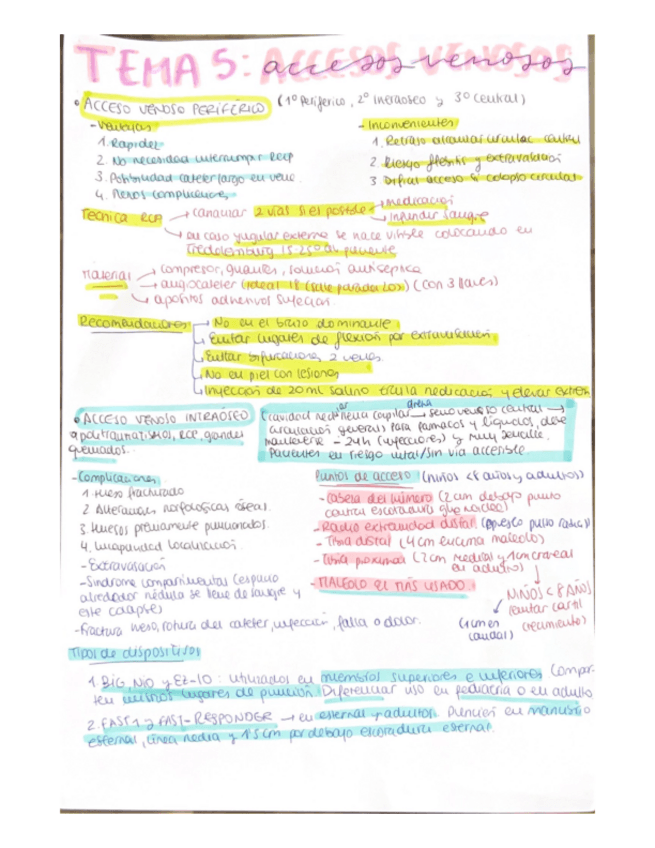 TEMA 5: accesos venosos
• ACCESO VENOSO PERIFÉRICO (1º Periferico, 2º Intraóseo y 3º Central)
- Ventajas
1. Rapidez
2. No necesidad interrumpir RCP
3. Posibilidad cateter largo en vene.
4. Menos complicaciones
- Inconvenientes
1. Retraso alcanzar circulac central
2. Riesgo flebitis y extravalación
3 Dificil acceso si colapso circulat
Técnica RCP → canalizar 2 vias si es posible → medicación
→ infundir sangre
→ en caso yugular externa se hace visible colocando en
Tredelemburg 15-25º al paciente
Material → compresor, guantes, solución antiseptica
→ angiocateter (ideal 18 (sale para da Los) (con 3 llaves)
→ apositos adhesivos sujeción
Recomendaciones → No en el brazo dominante
→ Evitar lugares de flexión por extravasación
→ Evitar bifurcaciones 2 venas
→ No en piel con lesiones
→ Inyección de 20ml salino tras la medicación y elevar extrem
• ACCESO VENOSO INTRAÓSEO
politraumatismos, RCP, grandes
quemados.
Cavidad medular → arteria capilar → seno venoso central →
circulación general) para farmacos y liquidos, debe
mantenerse - 24h (infecciones) y muy sencilla.
Pacientes en riesgo vital/sin via accesible.
- Complicaciones
1. Hueso fracturado
2. Alteraciones morfologicas óseas.
3. Huesos previamente puncionados.
4. Incapacidad localización.
- Extravasación
- Sindrome compartimental (espacio
alrededor médula se llena de sangre y
este colapse)
- fractura hueso, rotura del cateter, infección, falla o dolor.
Puntos de acceso (niños <8 años y adultos)
- Cabeza del húmero (2cm debajo punto
- Radio extremidad distal (opuesto pulso radial)
- Tibia distal (4cm encima maleolo)
- Tibia proximal (2cm medial y 1cm craneal
en adultos)
- MALEOLO EL MÁS USADO.
NIÑOS < 8 AÑOS
(evitar cartil
crecimiento)
(1cm en
caudal)
Tipos de dispositivos
1. BIG, NIO y EZ-IO: utilizados en miembros superiores e inferiores Compar-
ten mismos lugares de punción. Diferenciar uso en pediatria o en adulto
2. FAST1 y FAST-RESPONDER → en esternal y adultos. Punción en manubrio
esternal, linea media y 1'5cm por debajo escotadura esternal.